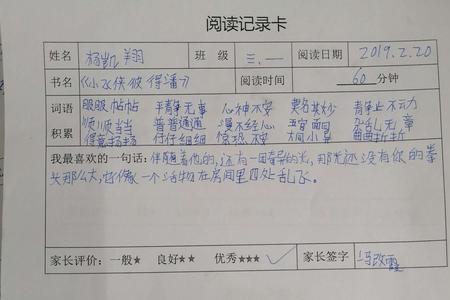 阅读记录卡
姓名 杨凯翔 班 级 三.一 阅读日期 2019.2.20
书名 《小飞侠彼得潘》 阅读时间 60 分钟
词语 服服帖帖 平静无事 心神不安 莫名其妙
积累 顺顺当当 普普通通 漫不经心 五官
得意扬扬 仔仔细细 大同小异
我最喜欢的一句话:伴随着他的,还有一团奇异的光,那光还没有你的拳
头那么大,它像一个活物在房间里四处乱飞。
家长评价:一般★ 良好★★ 优秀★★★ ✓ 家长签字 冯改霞